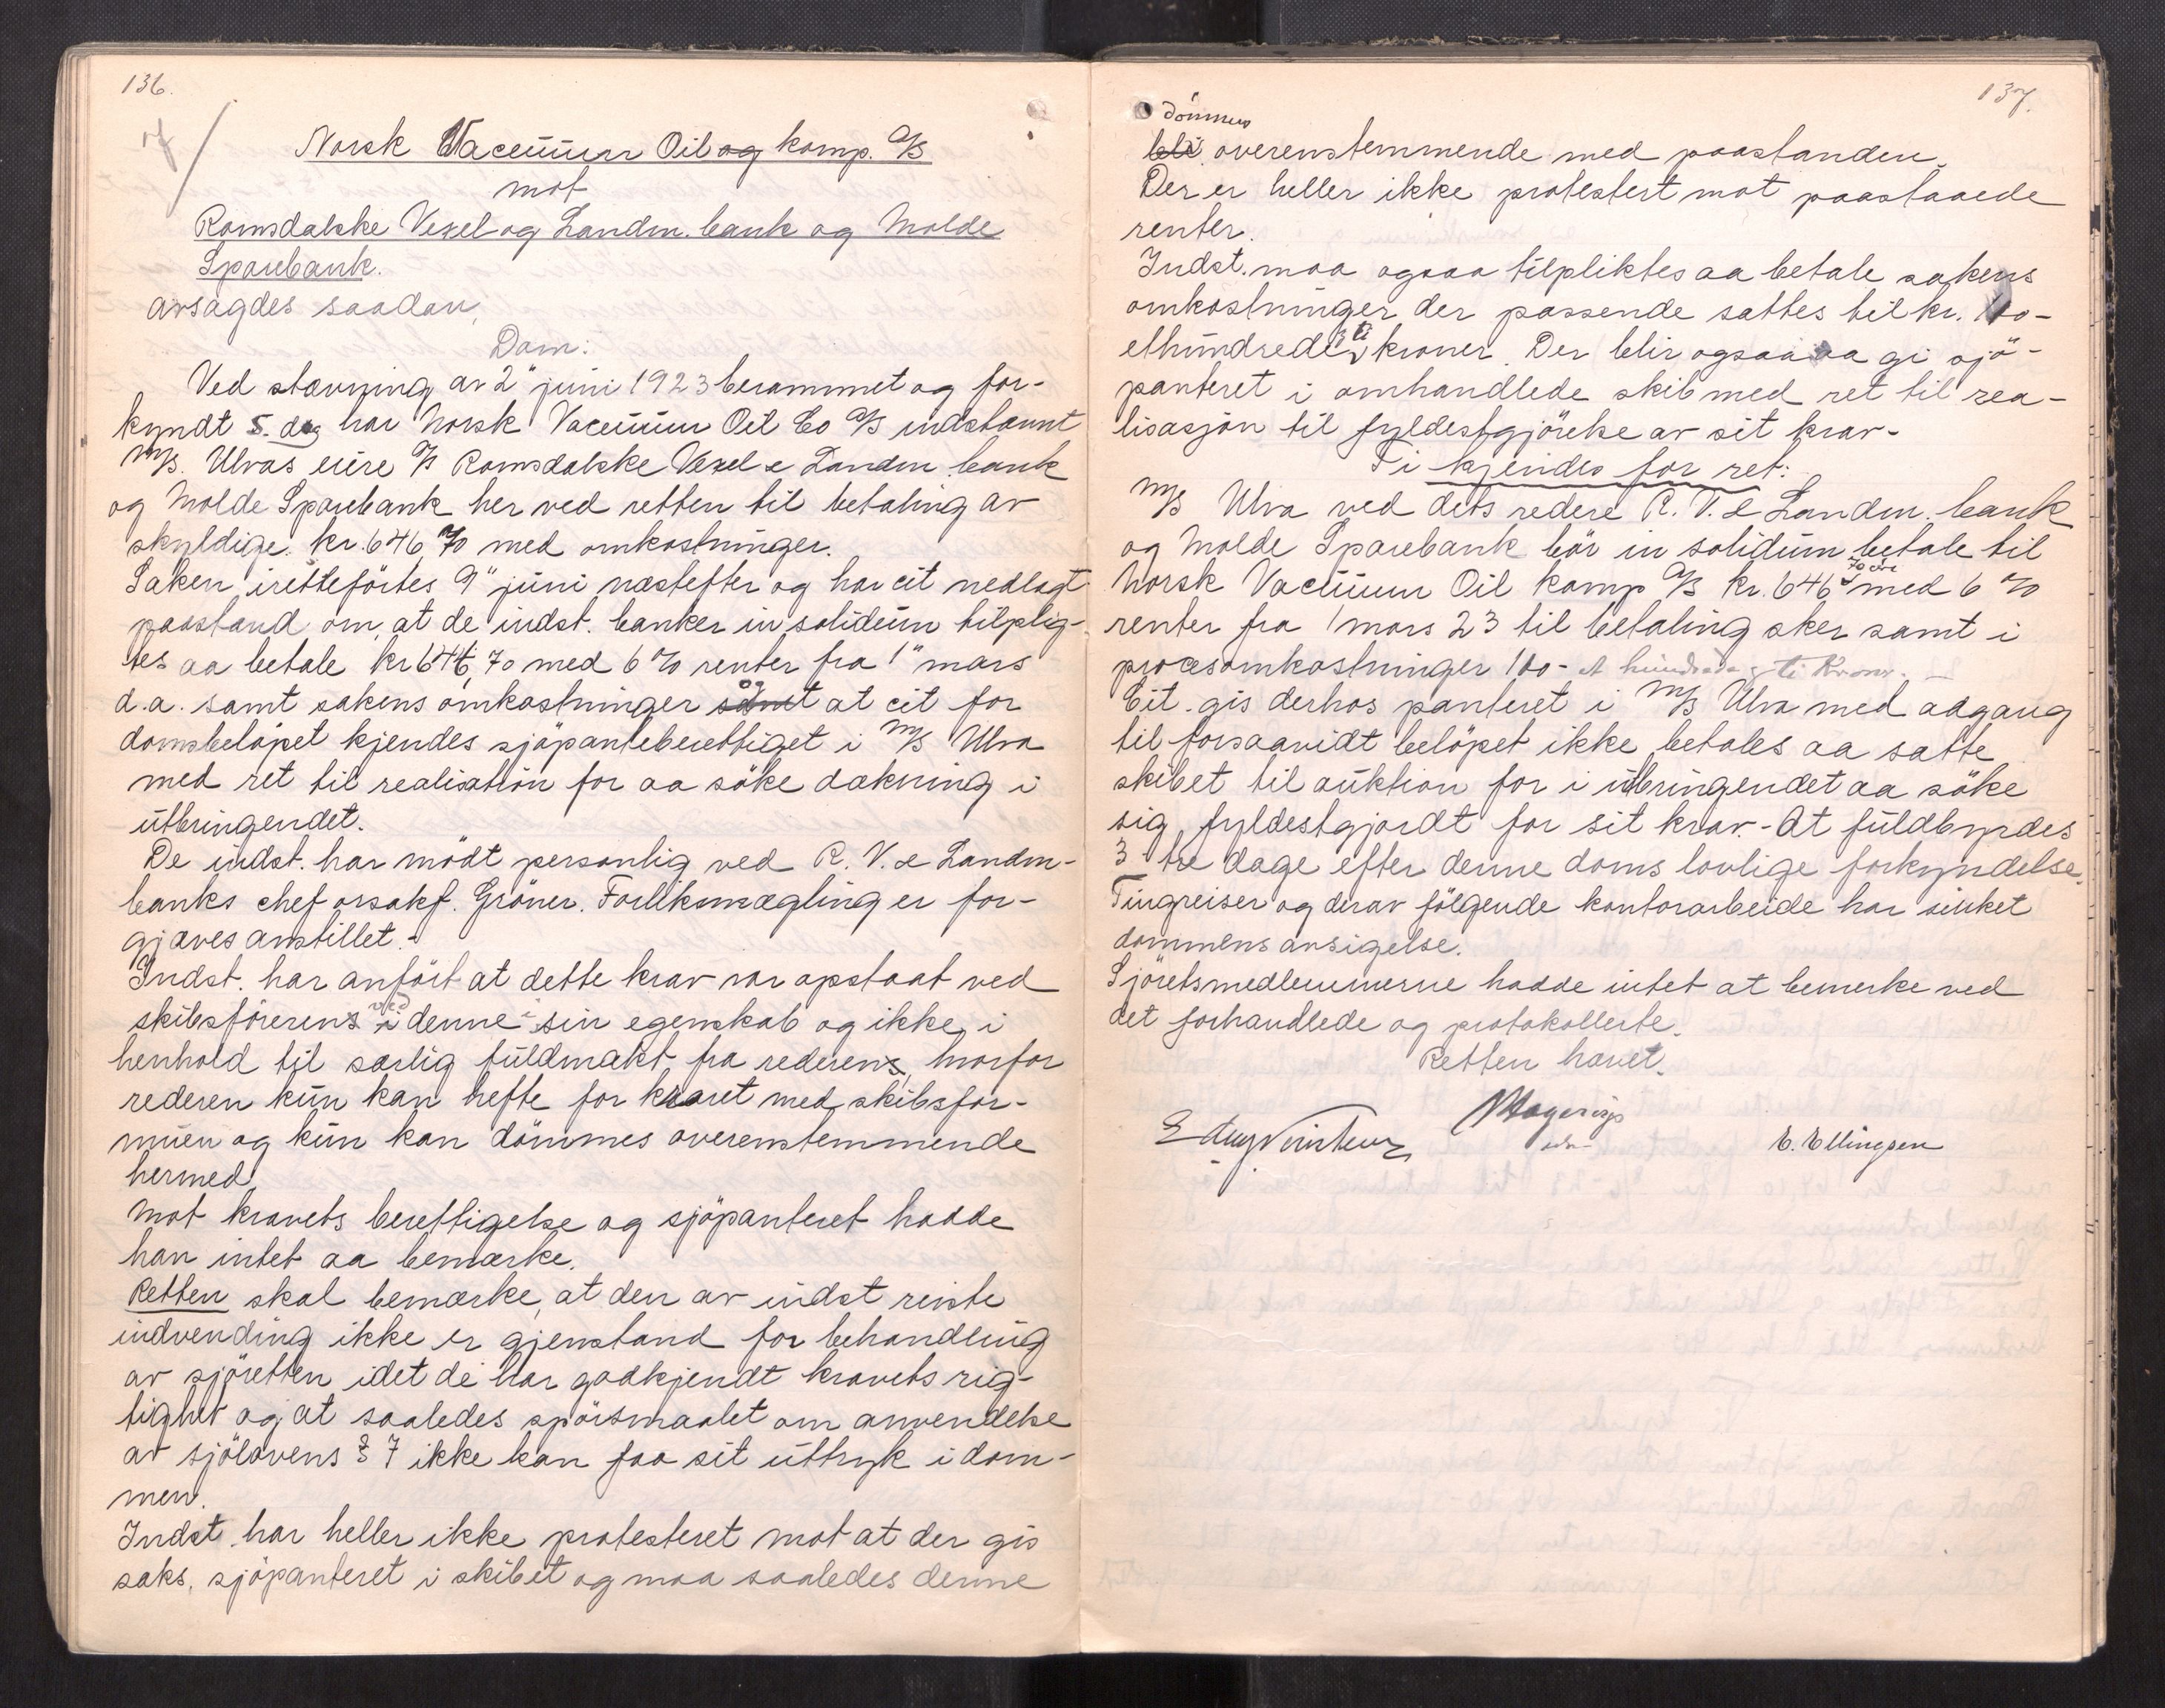 136.
Norsk Vacuum Oil og komp. A/S
mot
Romsdalske Vexel og Landm. bank og Molde
Sparebank.
avsagdes saadan,
Dom:
Ved stævning av 2" juni 1923 berammet og for-
kyndt 5. dag har Norsk Vacuum Oil Co A/S indstævnt
M/S. Ulvas eiere A/S Romsdalske Vexel & Landm. bank
og Molde Sparebank her ved retten til betaling av
skyldige kr. 646,70 med omkostninger.
Saken iretteførtes 9" juni næstefter og har cit nedlagt
paastand om, at de indst. banker in solidum tilplig-
tes aa betale kr 646,70 med 6 % renter fra 1" mars
d.a. samt sakens omkostninger samt og at cit for
domsbeløpet kjendes sjøpanteberettiget i M/S Ulva
med ret til realisation for aa søke dækning i
utbringendet.
De indst. har mødt personlig ved R. V. & Landm-
banks chef orsakf. Grøner. Forliksmægling er for-
gjæves anstillet.
Indst. har anført at dette krav var opstaat ved
skibsførerens i ved denne i sin egenskab og ikke i
henhold til særlig fuldmakt fra rederens, hvorfor
rederen kun kan hefte for kravet med skibsfor-
muen og kun kan dømmes overenstemmende
hermed.
Mot kravets berettigelse og sjøpanteret hadde
han intet aa bemærke.
Retten skal bemærke, at den av indst reiste
indvending ikke er gjenstand for behandling
av sjøretten idet de har godkjendt kravets rig-
tighet og at saaledes spørsmaalet om anvendelse
av sjølovens § 7 ikke kan faa sit uttryk i dom-
men.
Indst. har heller ikke protesteret mot at der gis
saks. sjøpanteret i skibet og maa saaledes denne
137.
dømmes
bli overenstemmende med paastanden.
Der er heller ikke protestert mot paastaaede
renter.
Indst. maa ogsaa tilpliktes aa betale sakens
omkostninger der passende sættes til kr. 110-
ethundrede ti kroner. Der blir ogsaa aa gi sjø-
panteret i omhandlede skib med ret til rea-
lisasjon til fyldestgjørelse av sit krav-
Ti kjendes for ret:
M/S Ulva ved dets redere R. V. & Landm. bank
og Molde Sparebank bør in solidum betale til
Norsk Vacuum Oil komp A/S kr. 646 70 øre med 6 %
renter fra 1 mars 23 til betaling sker samt i
procesomkostninger 110- et hundrede og ti Kroner. -
Cit. gis derhos panteret i M/S Ulva med adgang
til forsaavidt beløpet ikke betales aa sætte
skibet til auktion for i utbringendet aa søke
sig fyldestgjordt for sit krav. - At fuldbyrdes
3 tre dage efter denne doms lovlige forkyndelse.
Tingreiser og derav følgende kontorarbeide har sinket
dommens avsigelse.
Sjøretsmedlemmerne hadde intet at bemerke ved
det forhandlede og protokollerte.
Retten hævet.
E. Ellingsen